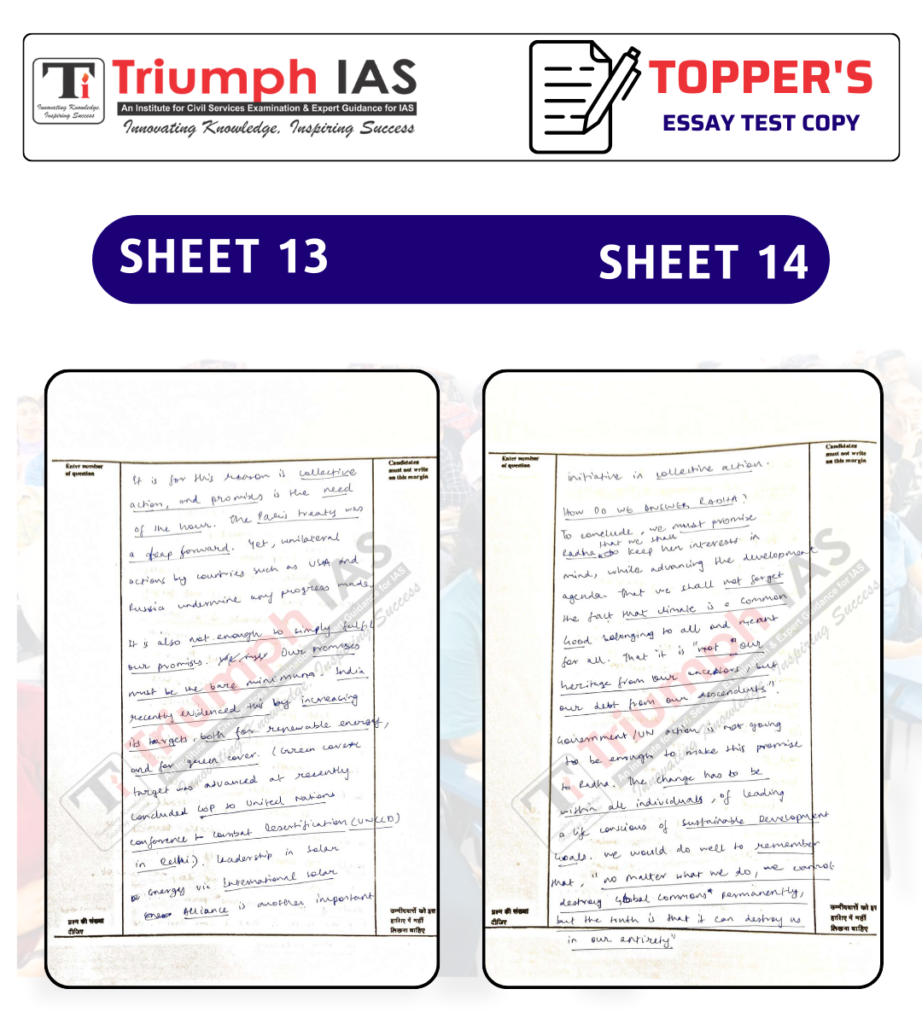 Ti
Innovating Knowledge,
Inspiring Success
Triumph IAS
An Institute for Civil Services Examination & Expert Guidance for IAS
Innovating Knowledge, Inspiring Success
TOPPER'S
ESSAY TEST COPY
SHEET 13
SHEET 14
Enter number
of question
Candidates
must not write
on this margin
It is for this reason is collective
action, and promises is the need
of the hour. The Paris treaty was
a leap forward. Yet, unilateral
actions by countries such as USA and
Russia undermine any progress made.
It is also not enough to simply fulfil
our promises. Our promises
must be the bare minimum. India
recently evidenced this by increasing
its targets, both for renewable energy,
and for green cover. (Green cover
target was advanced at recently
concluded COP to United Nations
conference to combat Desertification (UNCCD)
in Delhi). Leadership in solar
energy via International Solar
Alliance is another important
प्रश्न की संख्या
दीजिए
उम्मीदवारों को इस
हाशिए में नहीं
लिखना चाहिए
Enter number
of question
Candidates
must not write
on this margin
initiative in collective action.
HOW DO WE ANSWER RADHA?
To conclude, we must promise
that we shall
Radha to keep her interests in
mind, while advancing the development
agenda. That we shall not forget
the fact that climate is a common
Good belonging to all and meant
for all. That it is "not our
heritage from our ancestors, but
our debt from our descendents".
Government/UN action is not going
to be enough to make this promise
to Radha. The change has to be
within all individuals, of leading
a life conscious of Sustainable Development
Goals. We would do well to remember
that, "no matter what we do, we cannot
destroy global commons permanently,
but the truth is that it can destroy us
in our entirety"
प्रश्न की संख्या
दीजिए
उम्मीदवारों को इस
हाशिए में नहीं
लिखना चाहिए